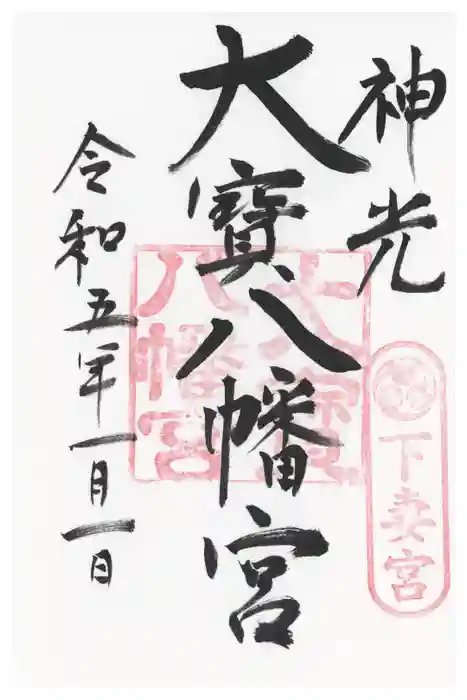 神光
下妻宮
大寶八幡宮
大寶
八幡宮
令和五年一月一日